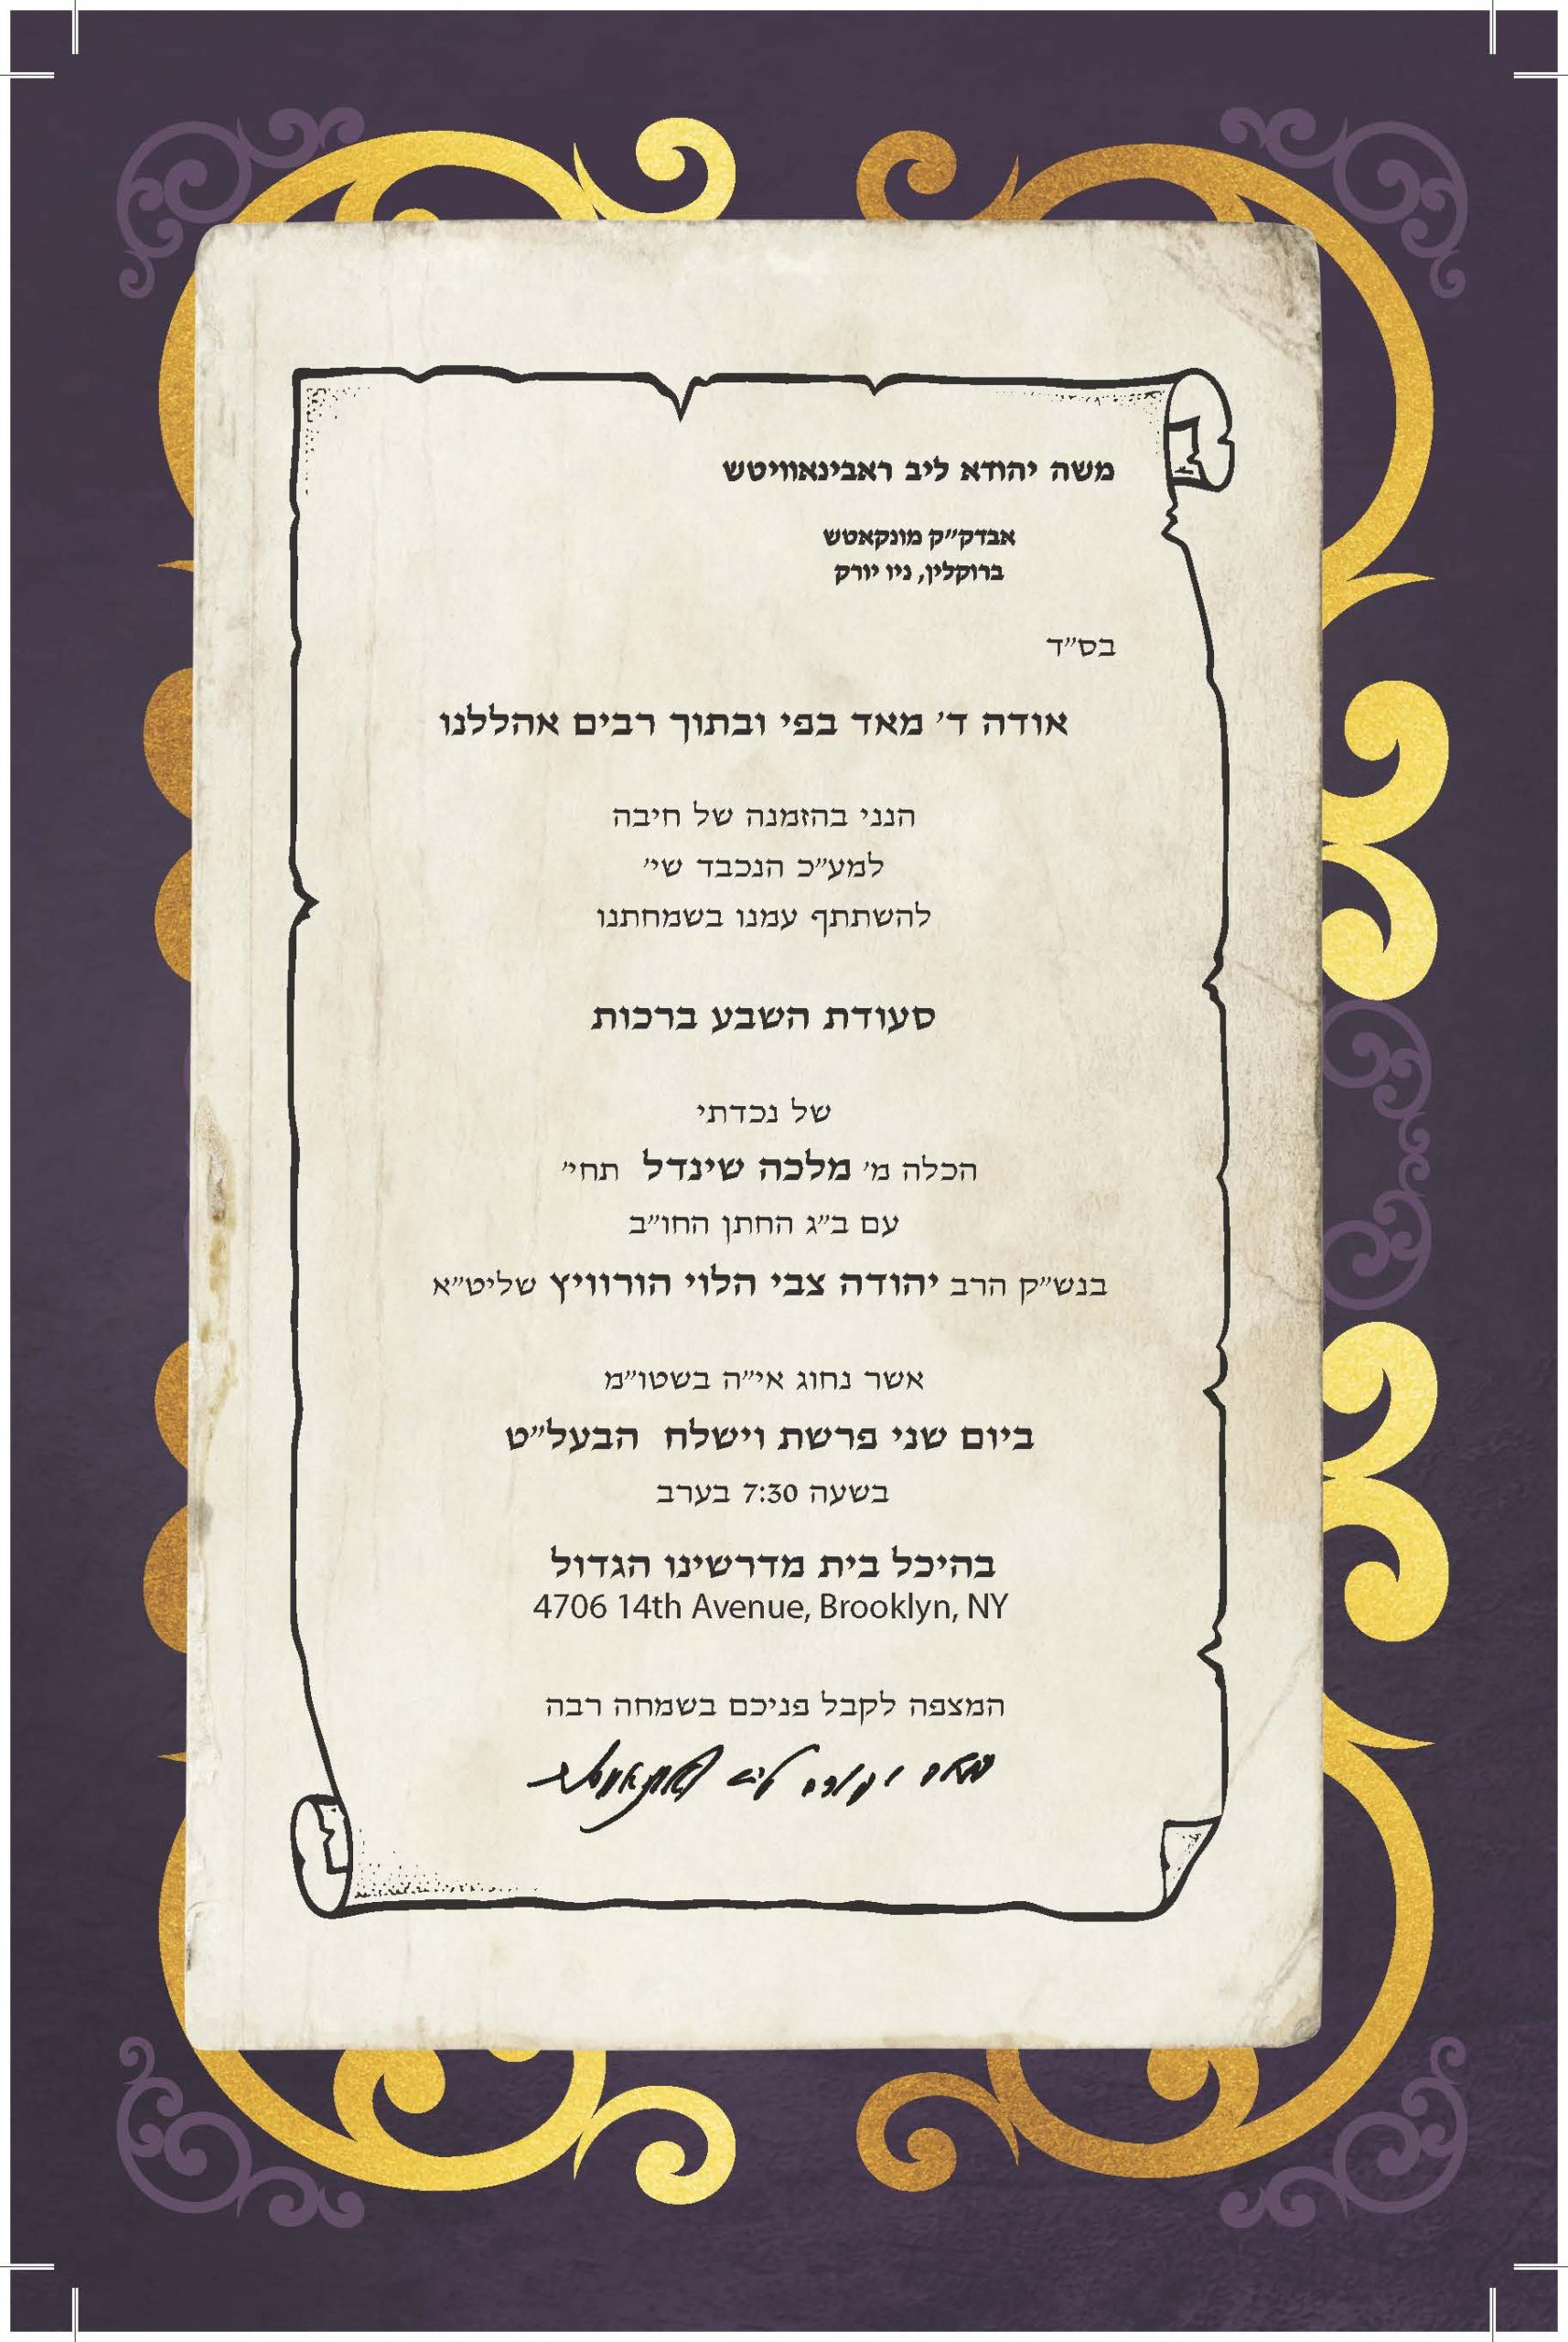 משה יהודא ליב ראבינאוויטש
אבדק״ק מונקאטש
ברוקלין, ניו יורק
בס״ד
אודה ד׳ מאד בפי ובתוך רבים אהללנו
הנני בהזמנה של חיבה
למע״כ הנכבד שי׳
להשתתף עמנו בשמחתנו
סעודת השבע ברכות
של נכדתי
הכלה מ׳ מלכה שינדל תחי׳
עם ב״ג החתן החו״ב
בנש״ק הרב יהודה צבי הלוי הורוויץ שליט״א
אשר נחוג אי״ה בשטו״מ
ביום שני פרשת וישלח הבעל״ט
בשעה 7:30 בערב
בהיכל בית מדרשינו הגדול
4706 14th Avenue, Brooklyn, NY
המצפה לקבל פניכם בשמחה רבה